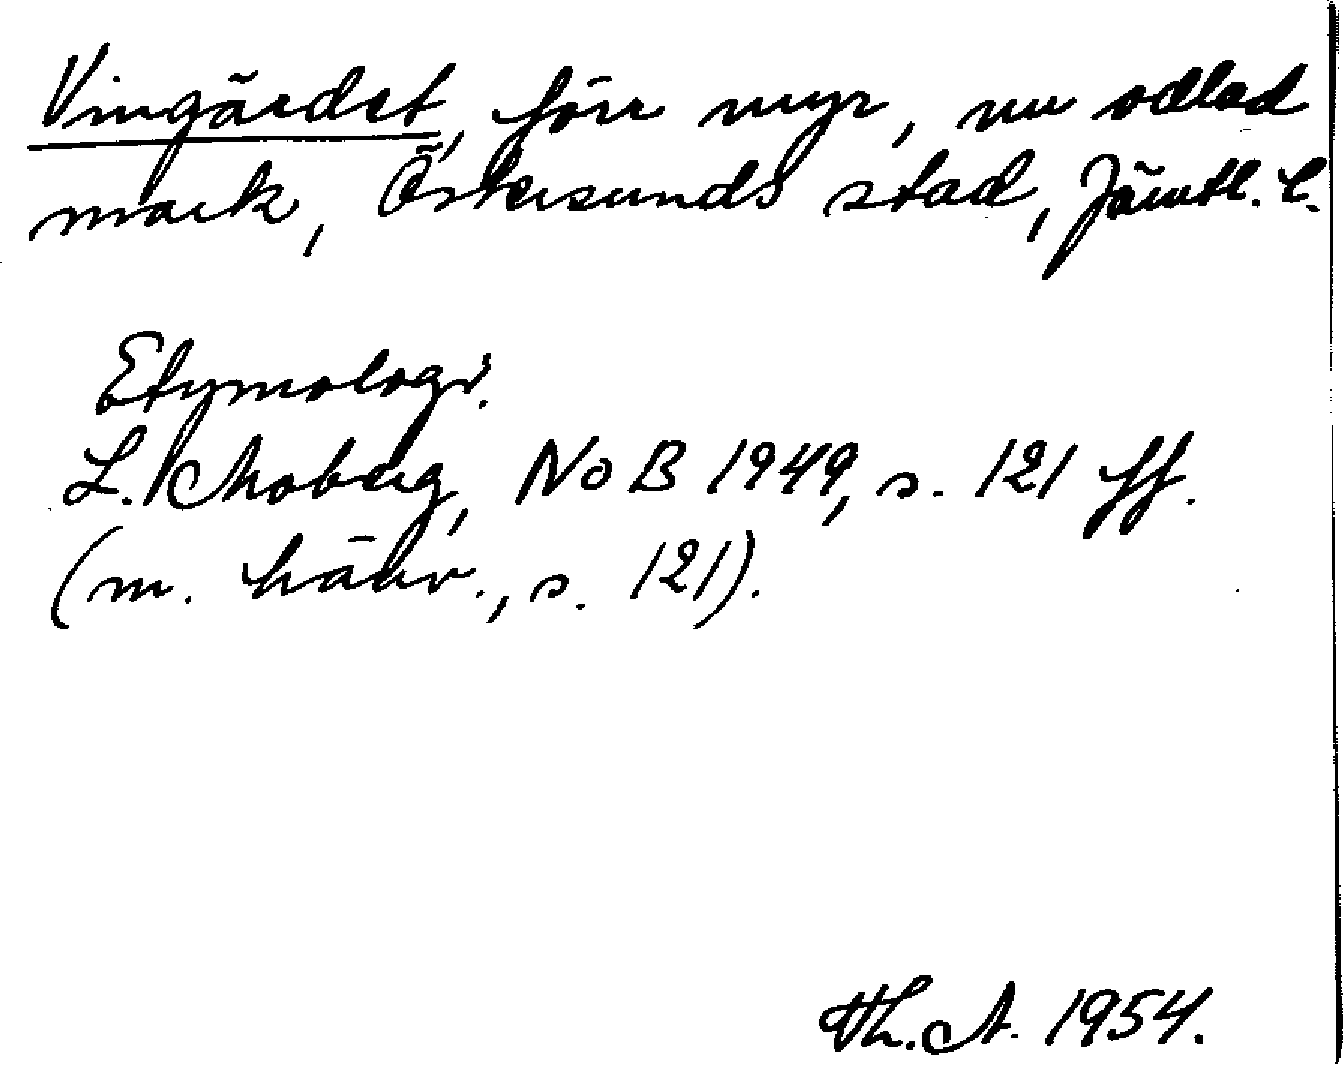 Vingärdet, förr myr, nu odlad
mark, Östersunds stad, Jämtl. l.
Etymologi.
L. Moberg, NoB 1949, s. 121 ff.
(m. hänv., s. 121).
Th. A. 1954.